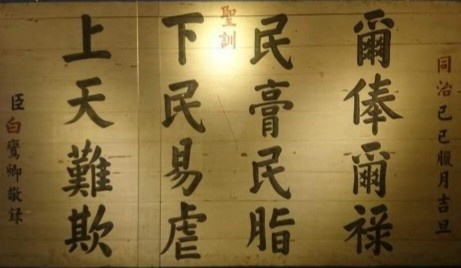 同治己巳臘月吉旦
爾俸爾祿
民膏民脂
聖訓
下民易虐
上天難欺
臣白鸞卿敬錄